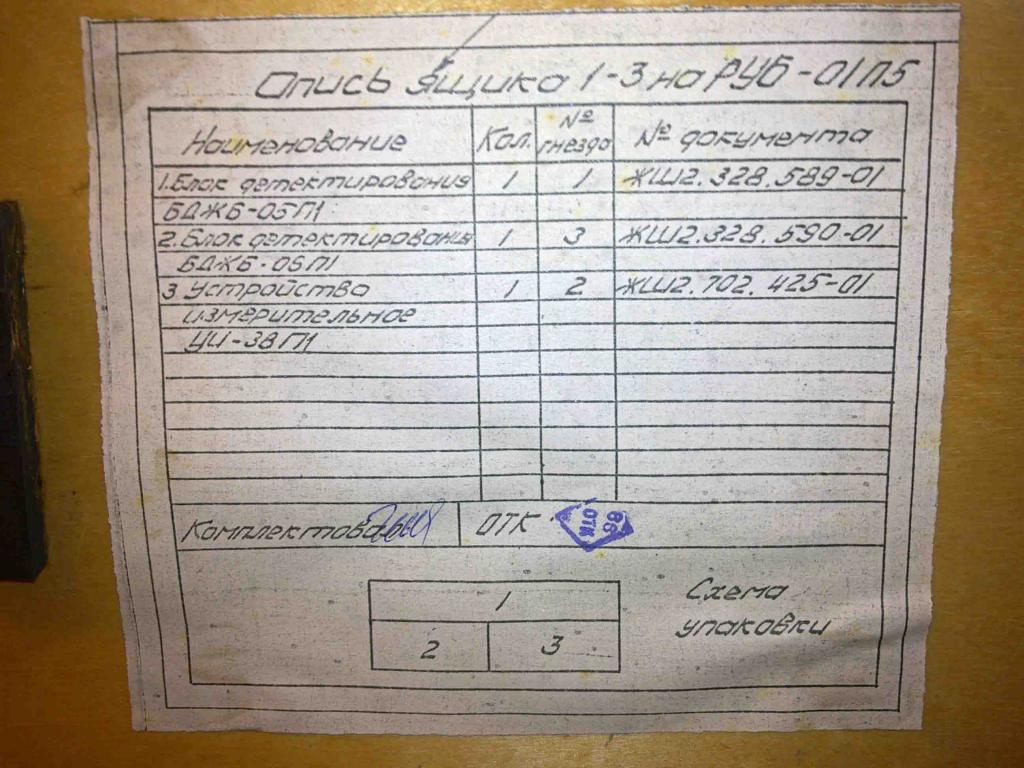 Опись ящика 1-3 на РУБ-01П5
Наименование Кол. № гнезда № документа
1. Блок детектирования 1 1 ЖШ2.328.589-01
БДЖБ-05П1
2. Блок детектирования 1 3 ЖШ2.328.590-01
БДЖБ-06П1
3 Устройство 1 2 ЖШ2.702.425-01
измерительное
УИ-38П1
Комплектовал ОТК ОТК 68
1
2 3
Схема
упаковки